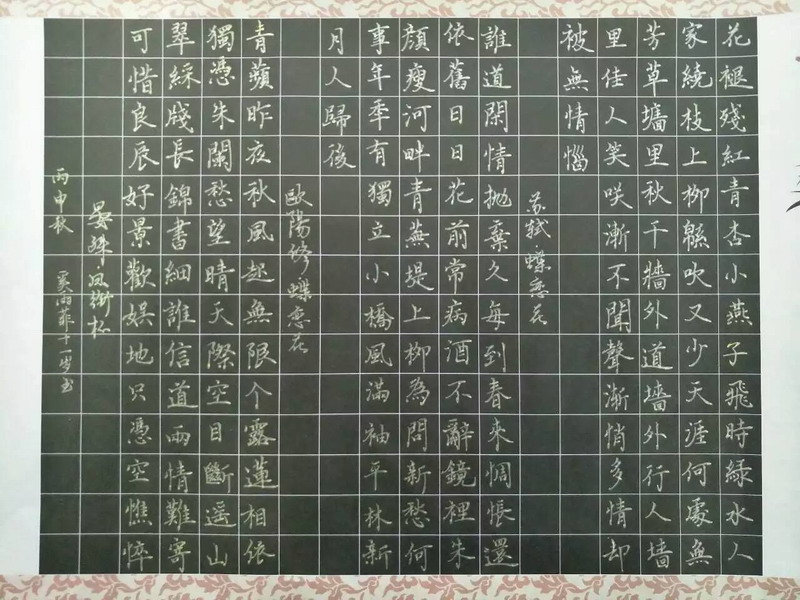 花褪殘紅青杏小燕子飛時綠水人
家繞枝上柳緜吹又少天涯何處無
芳草墻里秋千牆外道墻外行人墻
里佳人笑咲漸不聞聲漸悄多情却
被無情惱
苏轼蝶恋花
誰道閑情抛棄久每到春來惆悵還
依舊日日花前常病酒不辭鏡裡朱
顏瘦河畔青蕪堤上柳為問新愁何
事年年有獨立小橋風滿袖平林新
月人歸後
欧陽修蝶恋花
青蘋昨夜秋風起無限个露蓮相依
獨憑朱闌愁望晴天際空目斷遥山
翠綵牋長錦書細誰信道兩情難寄
可惜良辰好景歡娱地只憑空憔悴
晏殊凤衔杯
丙申秋 雨菲十一岁书